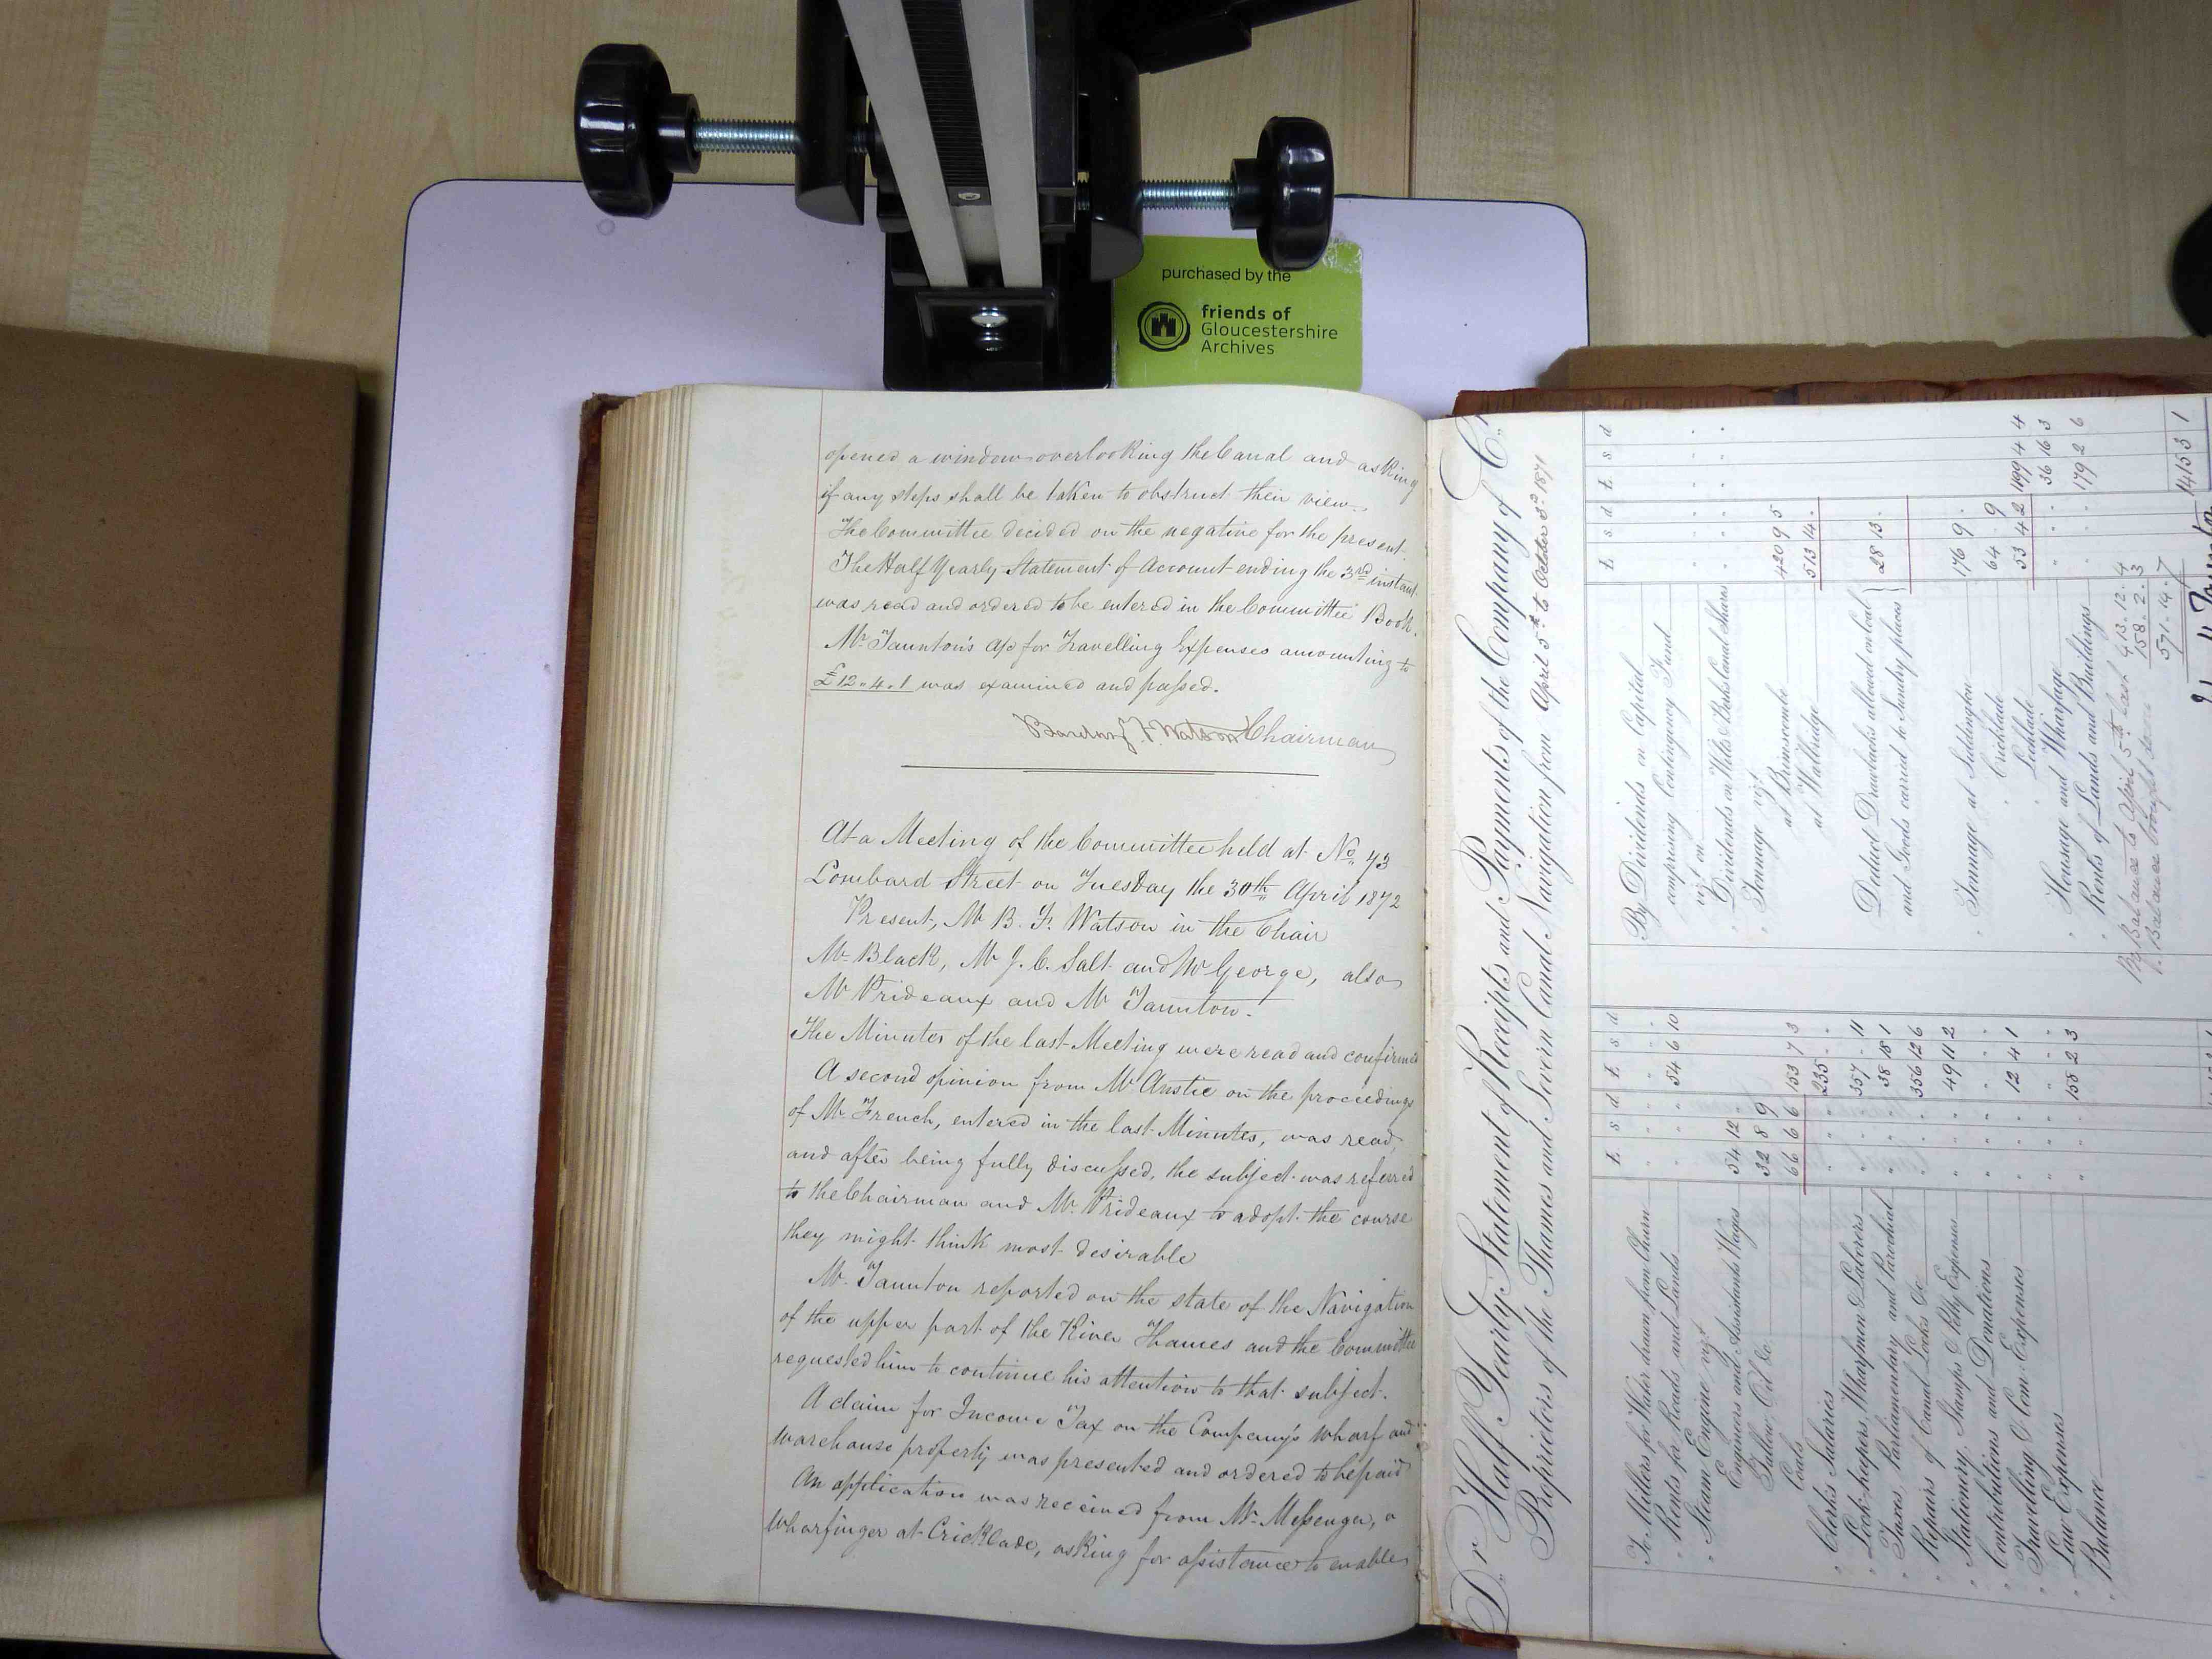 purchased by the
friends of
Gloucestershire
Archives
opened a window overlooking the Canal and asking
if any steps shall be taken to obstruct their view.
The Committee decided on the negative for the present.
The Half Yearly Statement of Account ending the 3rd instant
was read and ordered to be entered in the Committee Book.
Mr. Taunton's a/c for Travelling Expenses amounting to
£12.4.1 was examined and passed.
F. Watson Chairman
At a Meeting of the Committee held at No. 73
Lombard Street on Tuesday the 30th April 1872
Present, Mr B. F. Watson in the Chair
Mr Black, Mr J. C. Salt and Mr George, also
Mr Prideaux and Mr Taunton.
The Minutes of the last Meeting were read and confirmed
A second opinion from Mr Anstie on the proceedings
of Mr French, entered in the last Minutes, was read,
and after being fully discussed, the subject was referred
to the Chairman and Mr. Prideaux to adopt the course
they might think most desirable
Mr. Taunton reported on the state of the Navigation
of the upper part of the River Thames and the Committee
requested him to continue his attention to that subject.
A claim for Income Tax on the Company's wharf and
warehouse property was presented and ordered to be paid
An application was received from Mr. Messenger, a
wharfinger at Cricklade, asking for assistance to enable
Dr Half Yearly Statement of Receipts and Payments of the Company of
Proprietors of the Thames and Severn Canal Navigation from April 5th to October 3rd 1871
£ s d £ s d
To Millers for Water drawn from Churn " " "
" Rents for Roads and Lands " " 54 6 10
" Steam Engine vizt
Engineers and Assistants Wages 54 12 "
Tallow, Oil &c 32 8 9
Coals 66 6 6 153 7 3
" Clerks Salaries " " 235 " "
" Lock-keepers, Wharfmen & Laborers " " 357 " 11
" Taxes, Parliamentary and Parochial " " 38 18 1
" Repairs of Canal Locks &c " " 356 12 6
" Stationery, Stamps & Petty Expenses " " 49 11 2
" Contributions and Donations " " "
" Travelling & Com. Expenses " " 12 4 1
" Law Expenses " " "
" Balance " " 158 2 3
£ s d £ s d
By Dividends on Capital
comprising Contingency Fund
vizt on
" Dividends on Mills & Parkland Shares
" Tonnage vizt
at Brimscombe 420 9 5
at Wallbridge 513 14 "
Deduct Drawbacks allowed on Coal
and Goods carried to Sundry places 28 13 "
" Tonnage at Siddington 176 9 "
" Cricklade 64 " 9
" Lechlade 53 4 2 1199 4 4
" Housage and Wharfage " " 36 16 3
" Rents of Lands and Buildings " " 179 2 6
By Balance to April 5th last 413.12.4
" Balance brought down 158.2.3
571.14.7
1415 3 1